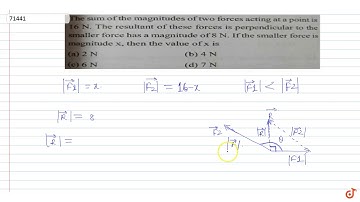 71441
The sum of the magnitudes of two forces acting at a point is
16 N. The resultant of these forces is perpendicular to the
smaller force has a magnitude of 8 N. If the smaller force is
magnitude x, then the value of x is
(a) 2 N (b) 4 N
(c) 6 N (d) 7 N
|F⃗1| = x |F⃗2| = 16-x |F⃗1| < |F⃗2|
|R⃗| = 8
|R⃗| =
F⃗2 R⃗ |R⃗| |F⃗2| θ
|F⃗| |F1|